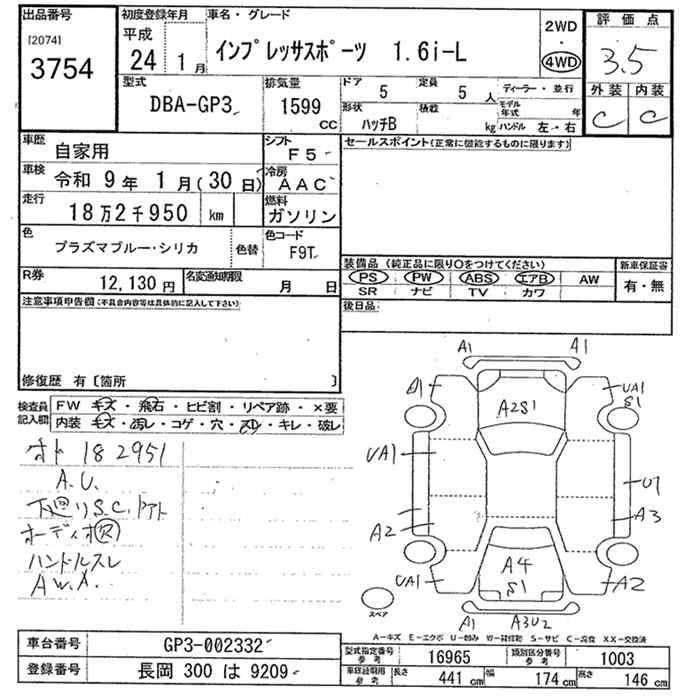 出品番号
[2074]
3754
初度登録年月
平成
24 1 月
車名・グレード
インプレッサスポーツ 1.6i-L
2WD
・
4WD
評価点
3.5
外装 内装
C C
型式
DBA-GP3
排気量
1599
CC
ドア
5
定員
5 人
形状
ハッチB
積載
kg
ディーラー・並行
モデル年式 年
ハンドル 左・右
車歴
自家用
シフト
F5
車検
令和 9年 1月(30日)
冷房
AAC
走行
18万2千950 km
燃料
ガソリン
色
プラズマブルー・シリカ
色替
色コード
F9T
R券
12,130 円
名変通知期限
月 日
セールスポイント(正常に機能するものに限ります)
装備品 (純正品に限り○をつけてください)
PS PW ABS エアB AW
SR ナビ TV カワ
新車保証書
有・無
後日品
注意事項申告欄(不具合内容等は具体的に記入して下さい)
修復歴 有〔箇所 〕
検査員記入欄
FW キズ・飛石・ヒビ割・リペア跡・×要
内装 キズ・汚レ・コゲ・穴・スレ・キレ・破レ
オド 182951
A.U.
下廻りS.C.
オーディオ欠
ハンドルスレ
A1 A1
A1
UA1
S1
A2S1
UA1
U1
A2
A3
A4
S1
UA1
A2
A1 A3U2
スペア
A-キズ E-エクボ U-凹み W-補修跡 S-サビ C-腐食 XX-交換済
車台番号
GP3-002332
登録番号
長岡 300 は 9209
型式指定番号
参考
16965
類別区分番号
参考
1003
車庫証明用
参考
長さ
441 cm
幅
174 cm
高さ
146 cm